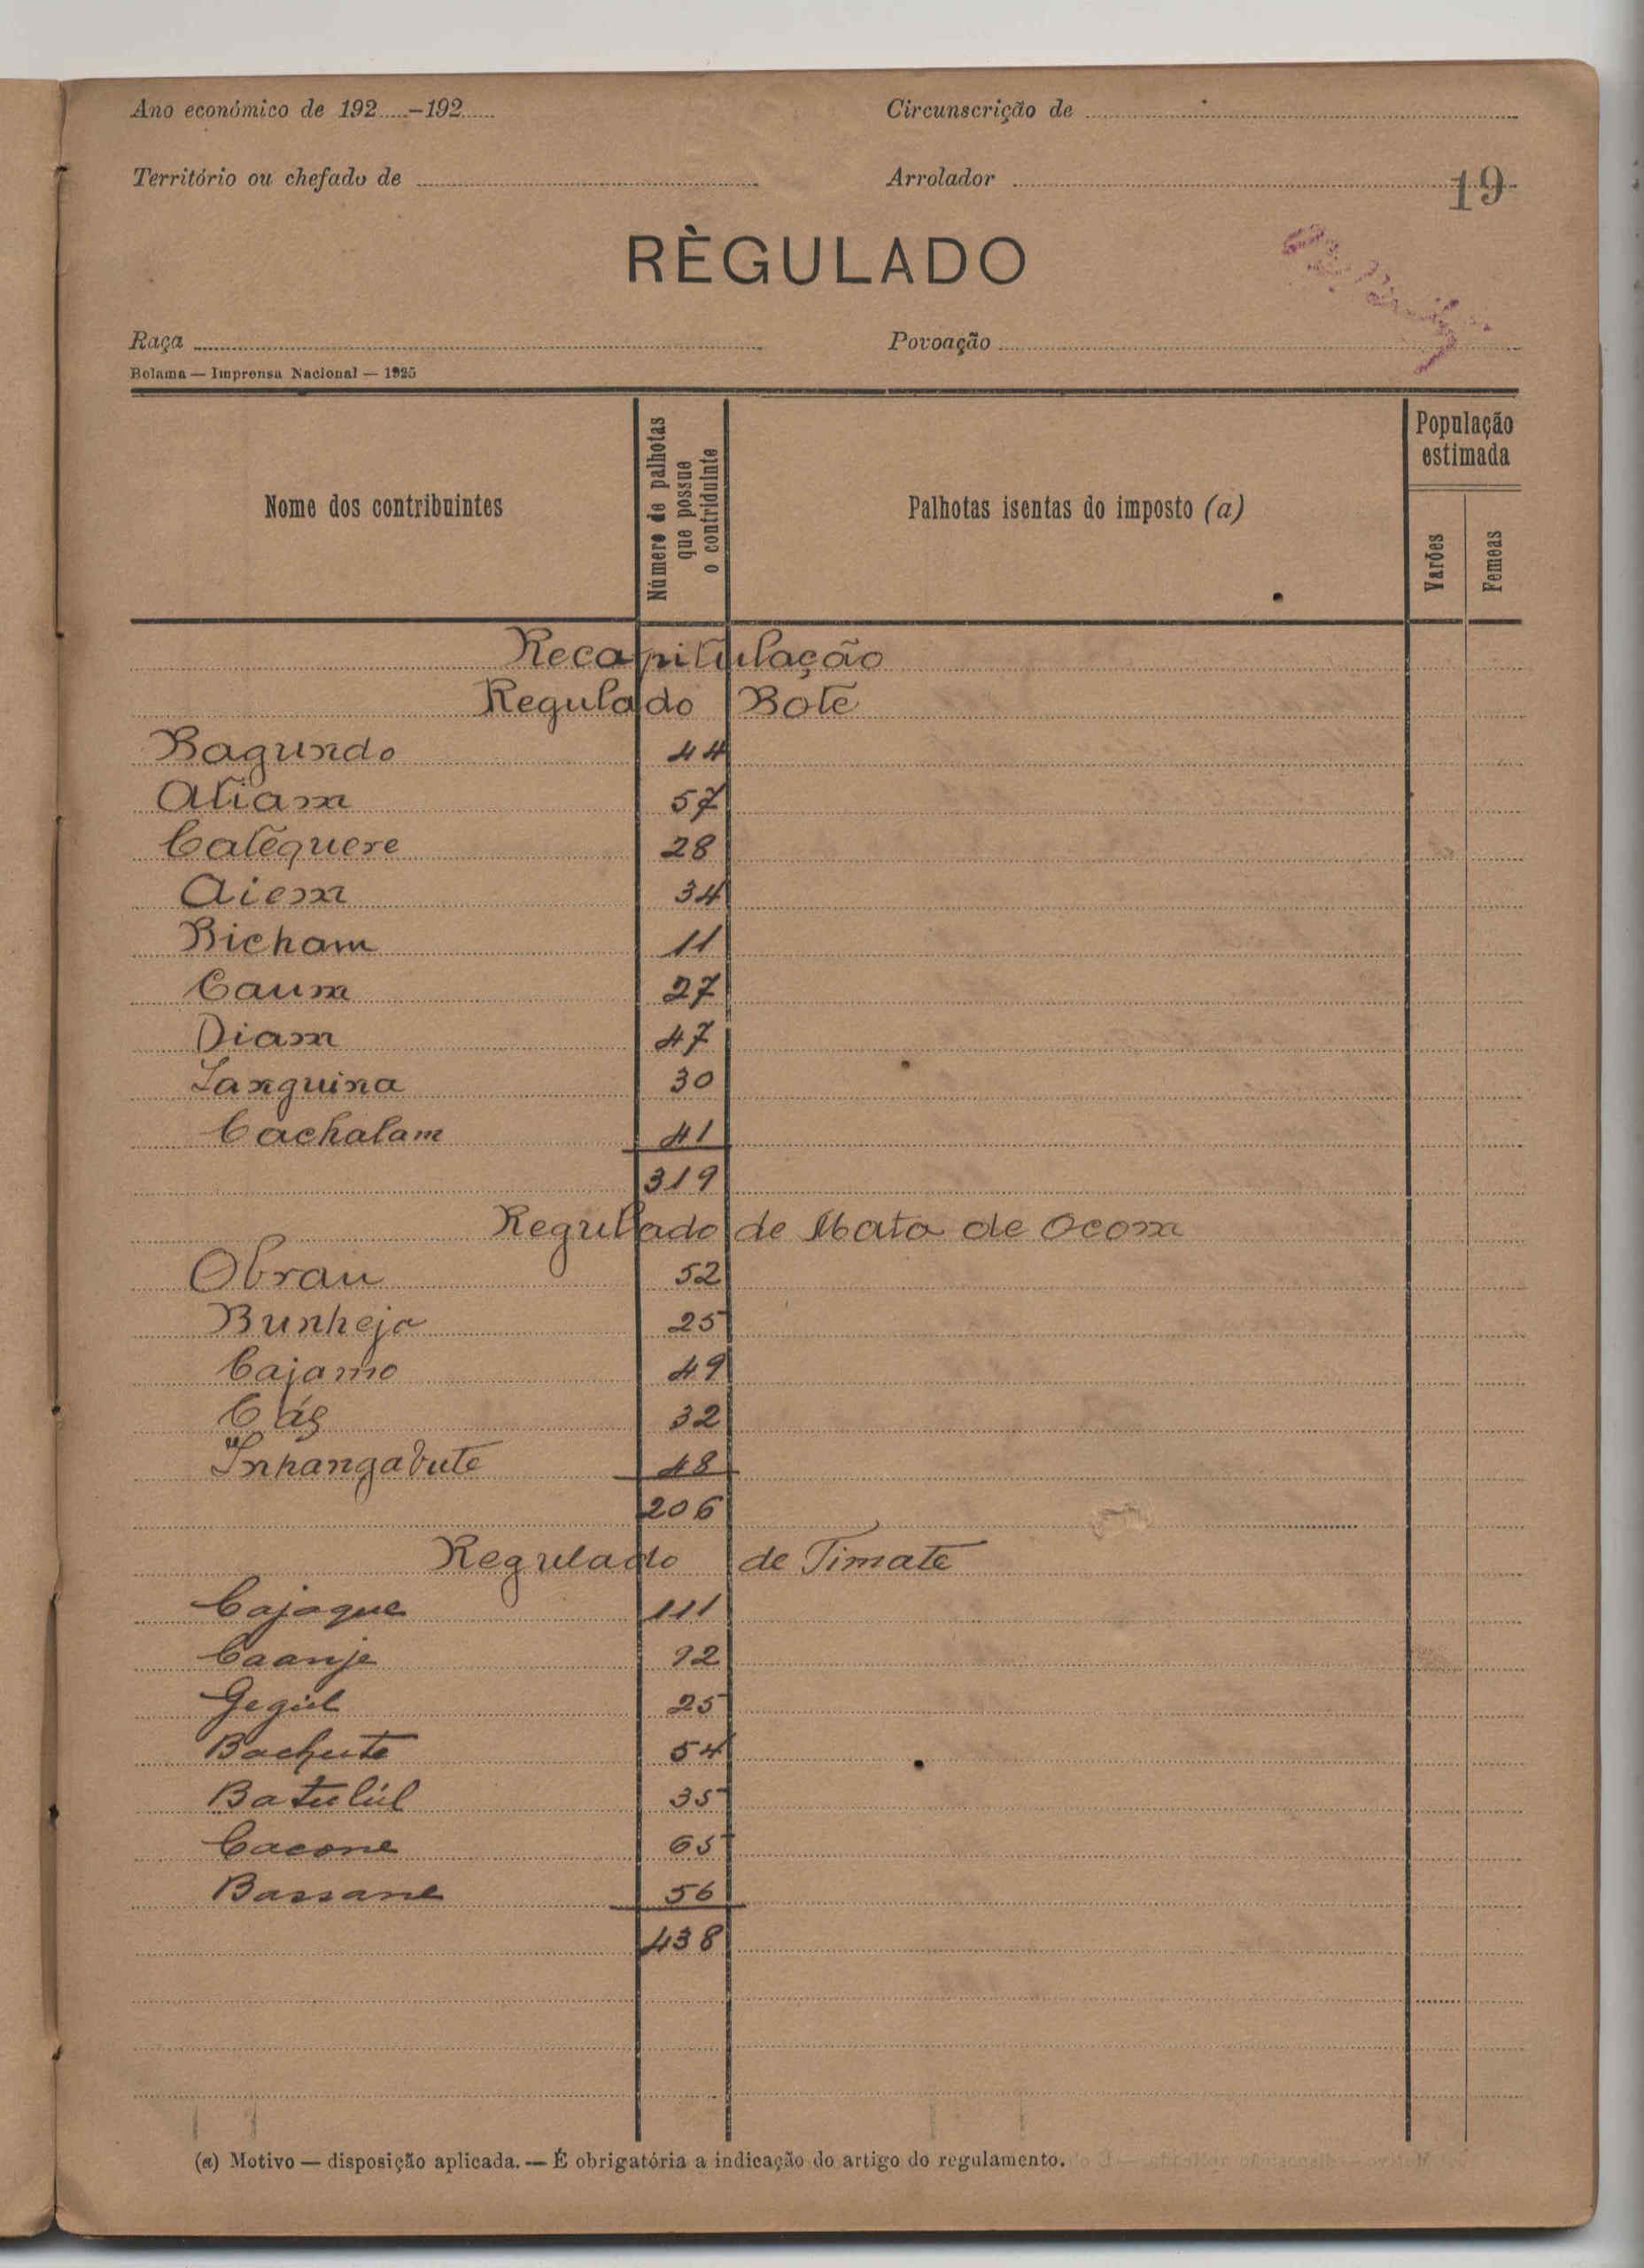 Ano económico de 192.....-192......
Circunscrição de
Território ou chefado de
Arrolador
19
RÈGULADO
Raça
Povoação
Bolama — Imprensa Nacional — 1925
Nome dos contribuintes
Número de palhotas que possue o contriduinte
Palhotas isentas do imposto (a)
População estimada
Varões
Femeas
Recapitulação
Regulado Bote
Bagundo 44
Atiam 57
Catequere 28
Aiem 34
Bicham 11
Caum 27
Diam 47
Languina 30
Cachalam 41
319
Regulado de Mata de Ocom
Obrau 52
Bunheja 25
Cajamo 49
Cás 32
Inhangabute 48
206
Regulado de Timate
Cajaque 111
Caanje 92
Gegúl 25
Bachute 54
Batulúl 35
Cacone 65
Bassane 56
438
(a) Motivo — disposição aplicada. — É obrigatória a indicação do artigo do regulamento.